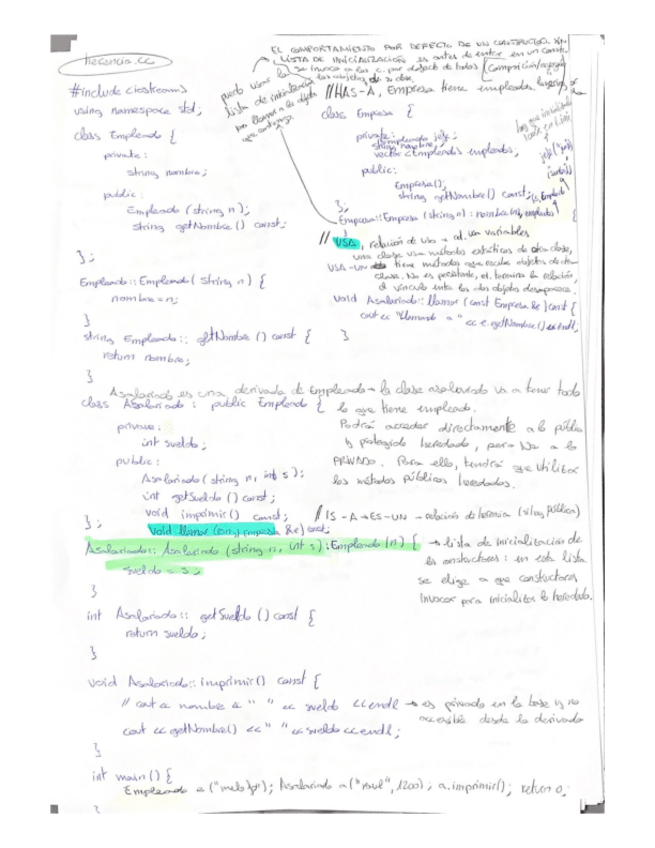 herencia.cc
#include <iostream>
using namespace std;
class Empleado {
private:
string nombre;
public:
Empleado (string n);
string getNombre () const;
};
Empleado::Empleado (string n) {
nombre=n;
}
string Empleado:: getNombre () const {
return nombre;
}
EL COMPORTAMIENTO POR DEFECTO DE UN CONSTRUCTOR SIN
LISTA DE INICIALIZACIÓN es antes de entrar en un const.
se invoca a los c. por defecto de todos
los objetos de su clase.
//HAS-A, Empresa tiene empleados
class Empresa {
private:
string nombre;
vector<Empleado> empleados;
public:
Empresa();
string getNombre() const;
};
Empresa::Empresa (string n) : nombre(n), empleados {
}
// USA, relación de uso
una clase usa métodos estáticos de otra clase,
USA-UN tiene métodos que recibe objetos de otra
clase. No es persistente, termina la relación,
el vínculo entre los dos objetos desaparece.
void Asalariado::llamar (const Empresa &e) const {
cout << "Llamando a " << e.getNombre() << endl;
}
Asalariado es una derivada de Empleado → la clase asalariado va a tener todo
lo que tiene empleado.
class Asalariado : public Empleado {
private:
int sueldo;
public:
Asalariado (string n, int s);
int getSueldo () const;
void imprimir() const;
void llamar (const Empresa &e) const;
};
Podrá acceder directamente a lo público
y protegido heredado, pero NO a lo
PRIVADO. Para ello, tendrá que utilizar
los métodos públicos heredados.
// IS-A → ES-UN → relación de herencia (si hay pública)
Asalariado:: Asalariado (string n, int s): Empleado (n) {
sueldo = s;
}
→ lista de inicialización de
los constructores: en esta lista
se elige a que constructores
invocar para inicializar lo heredado.
int Asalariado:: getSueldo () const {
return sueldo;
}
void Asalariado:: imprimir() const {
// cout << nombre << " " << sueldo << endl → es privado en la base y no
accesible desde la derivada
cout << getNombre() << " " << sueldo << endl;
}
int main () {
Asalariado a ("raul", 1200); a.imprimir(); return 0;
}